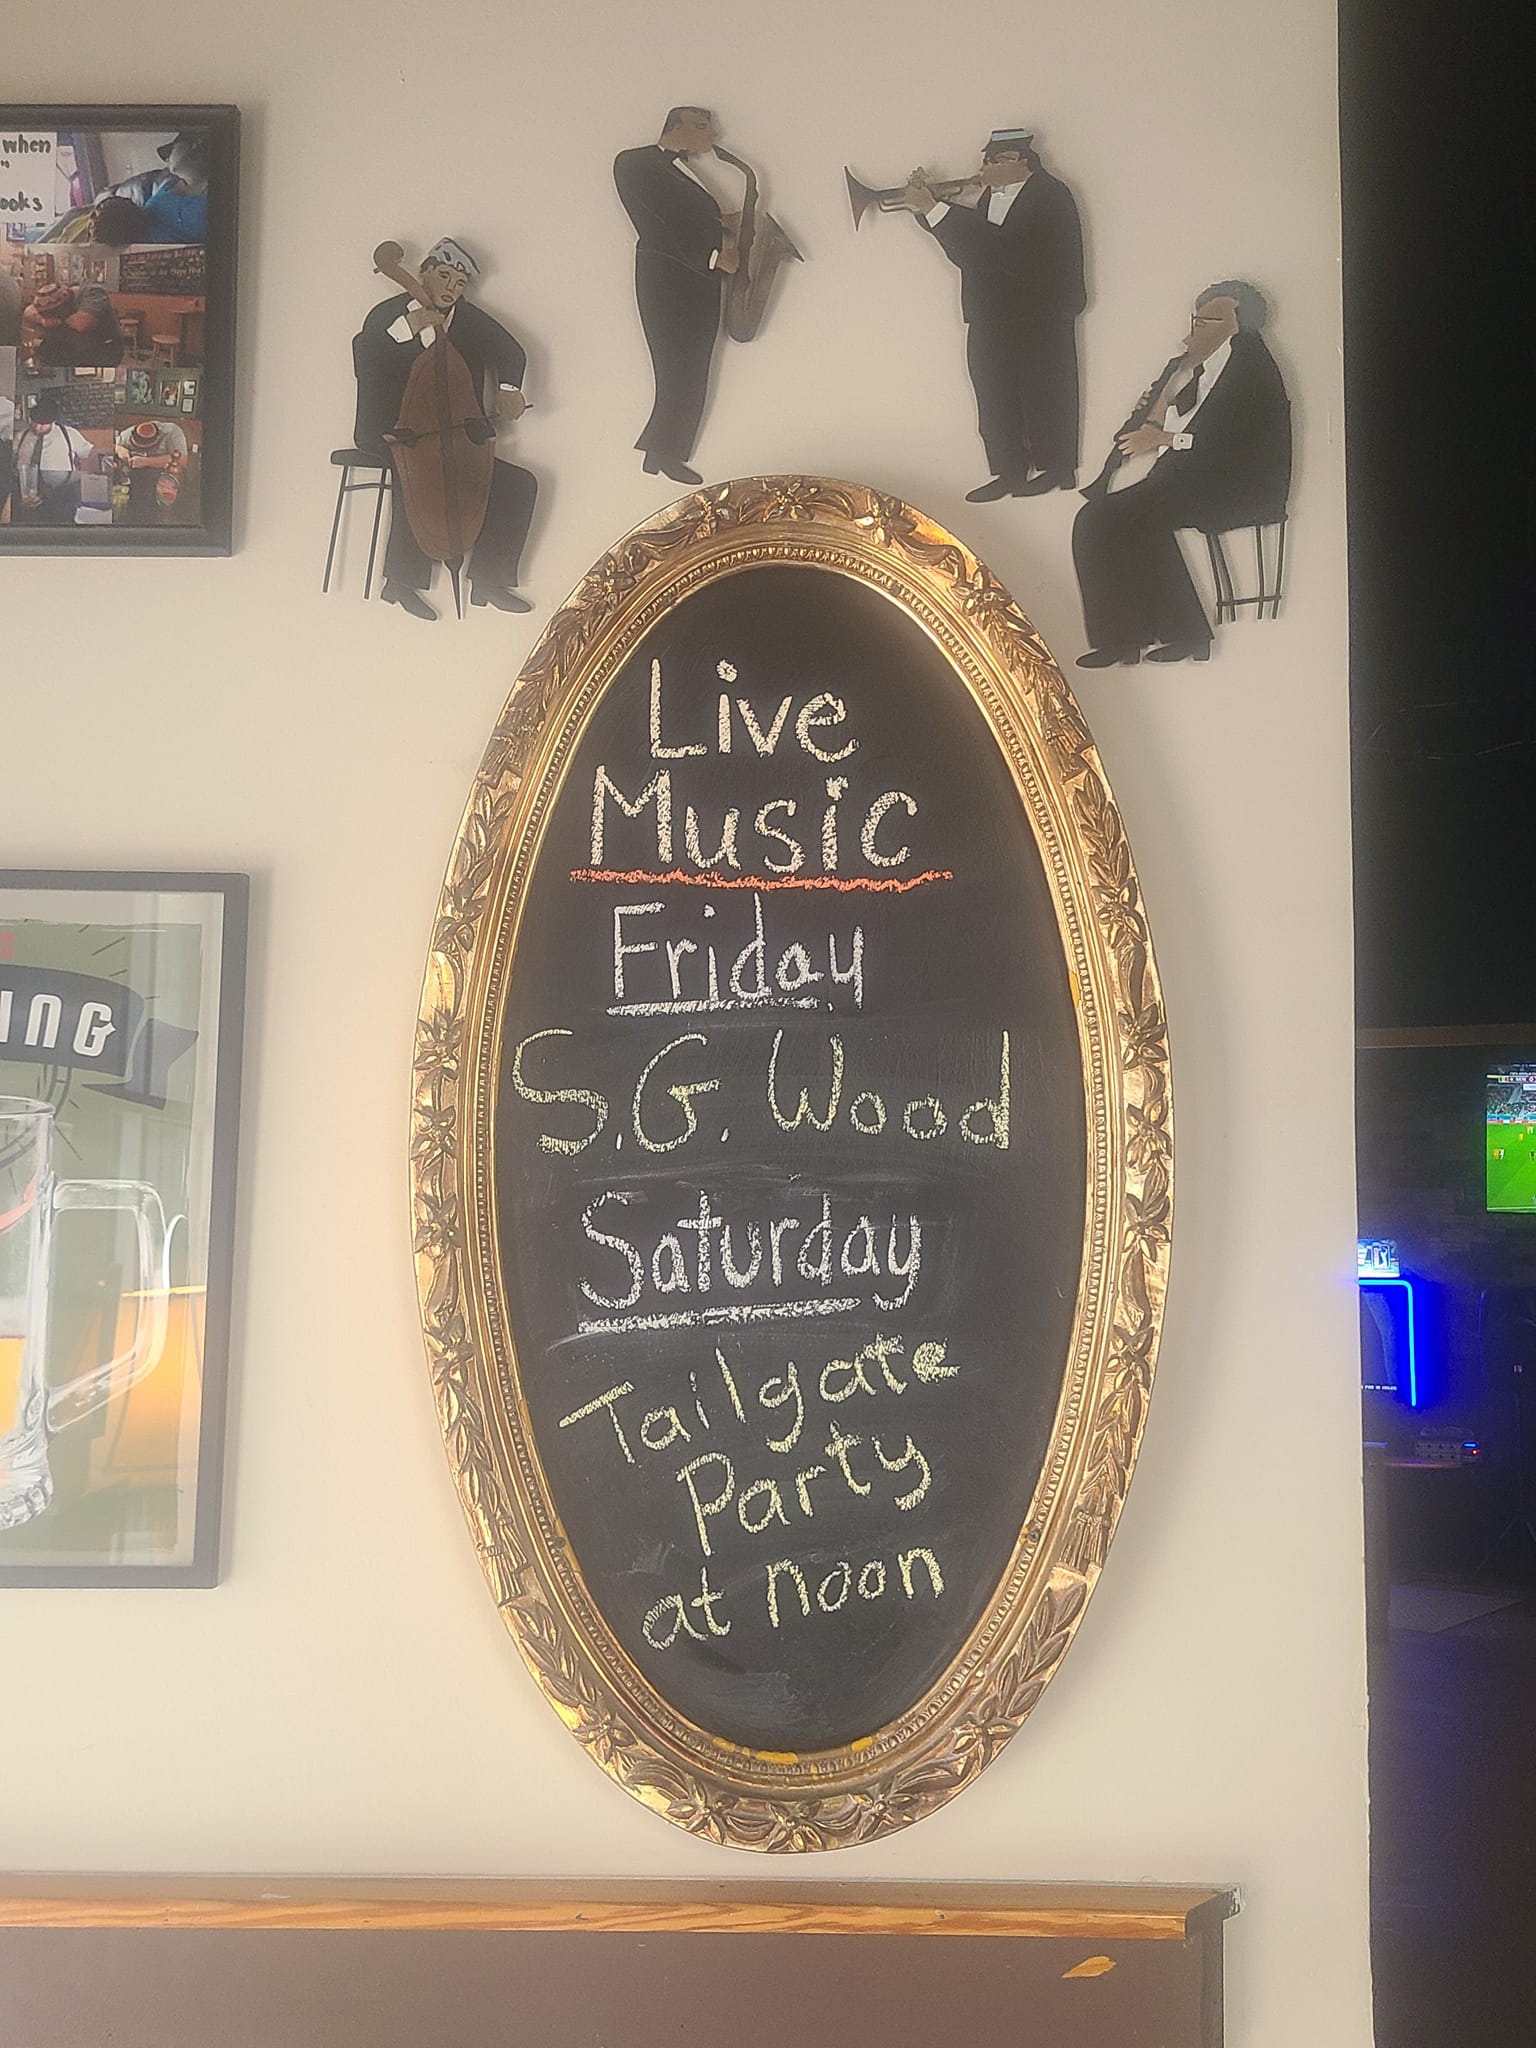 when
ooks
ING
Live
Music
Friday
S.G. Wood
Saturday
Tailgate
Party
at noon